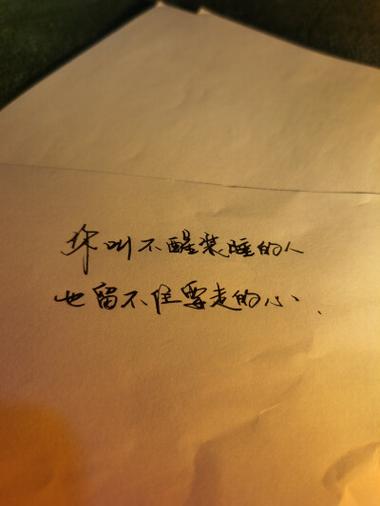 你叫不醒装睡的人
也留不住要走的心.